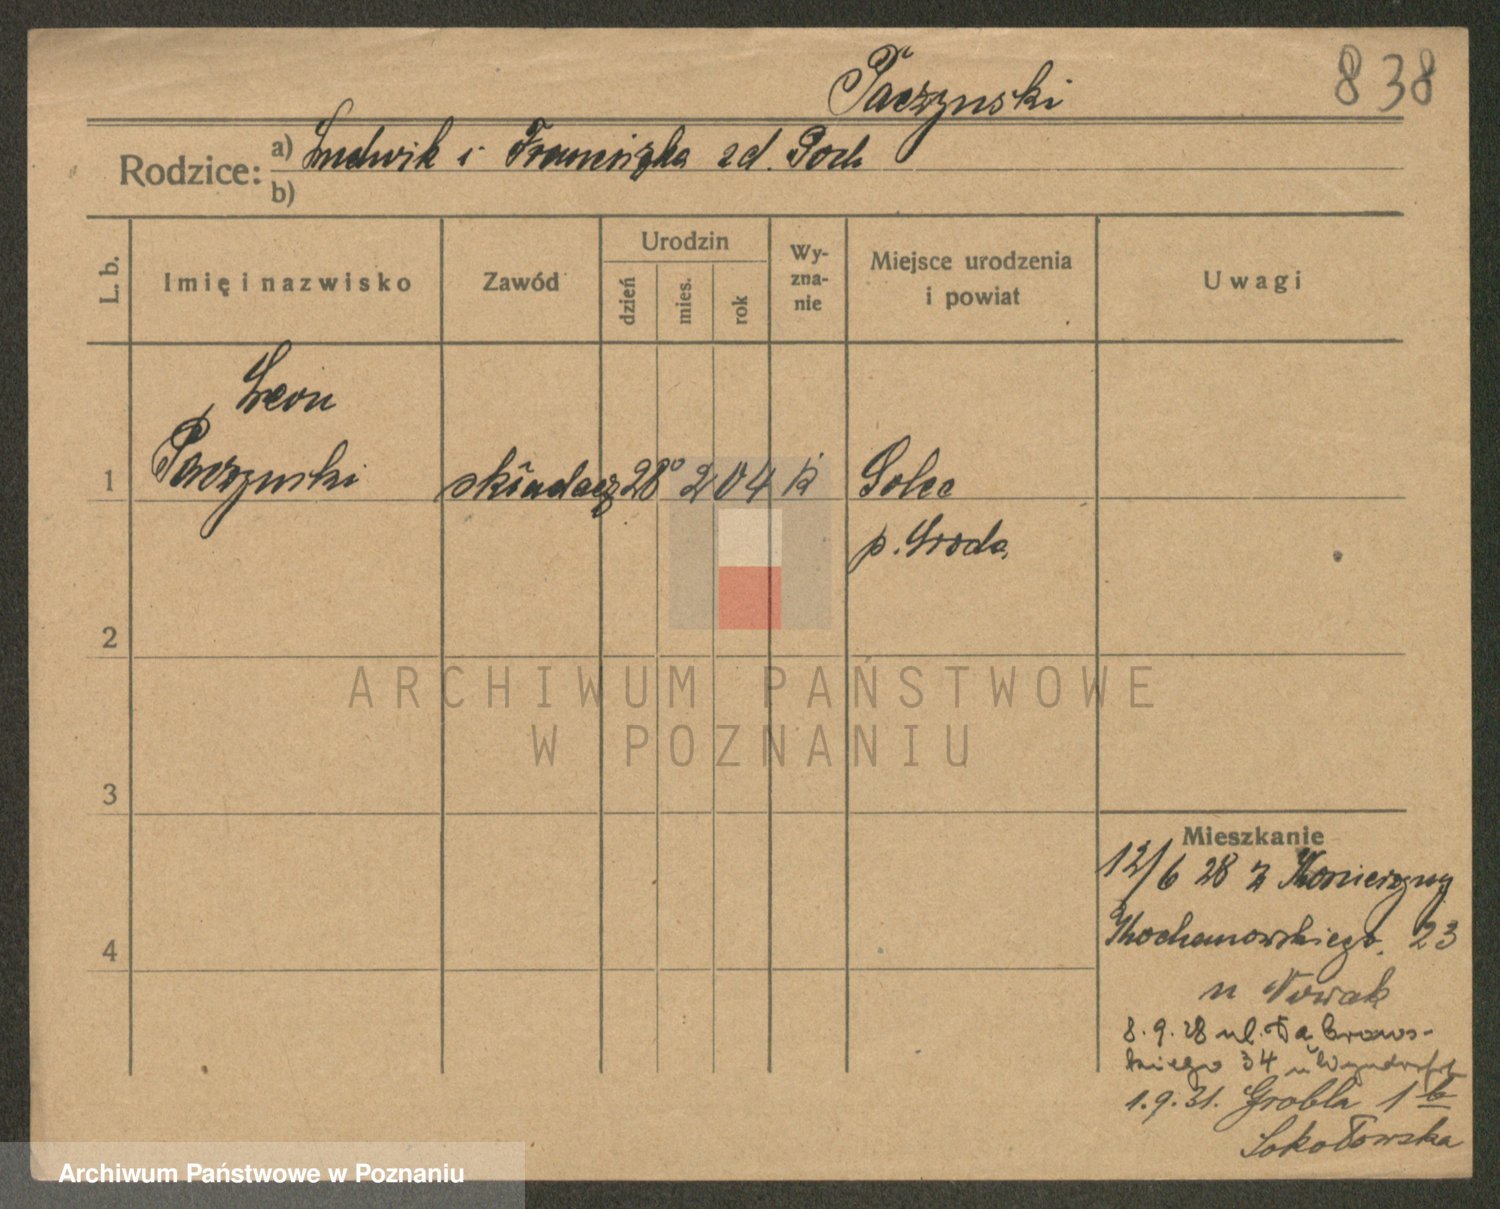 Paczynski
838
Rodzice: a) Ludwik i Franciszka zd. Poch
b)
L. b.
Imię i nazwisko
Zawód
Urodzin
dzień
mies.
rok
Wy-
zna-
nie
Miejsce urodzenia
i powiat
Uwagi
Leon
1 Paczynski składacz 28 2 04 k Solec
p. Sroda
2
3
4
Mieszkanie
12/6 28 z
Kochanowskiego 23
u Nowak
8.9.28 ul. Dąbrows-
kiego 34 u
1.9.31. Grobla 1b
Sokołowska
ARCHIWUM PAŃSTWOWE
W POZNANIU
Archiwum Państwowe w Poznaniu